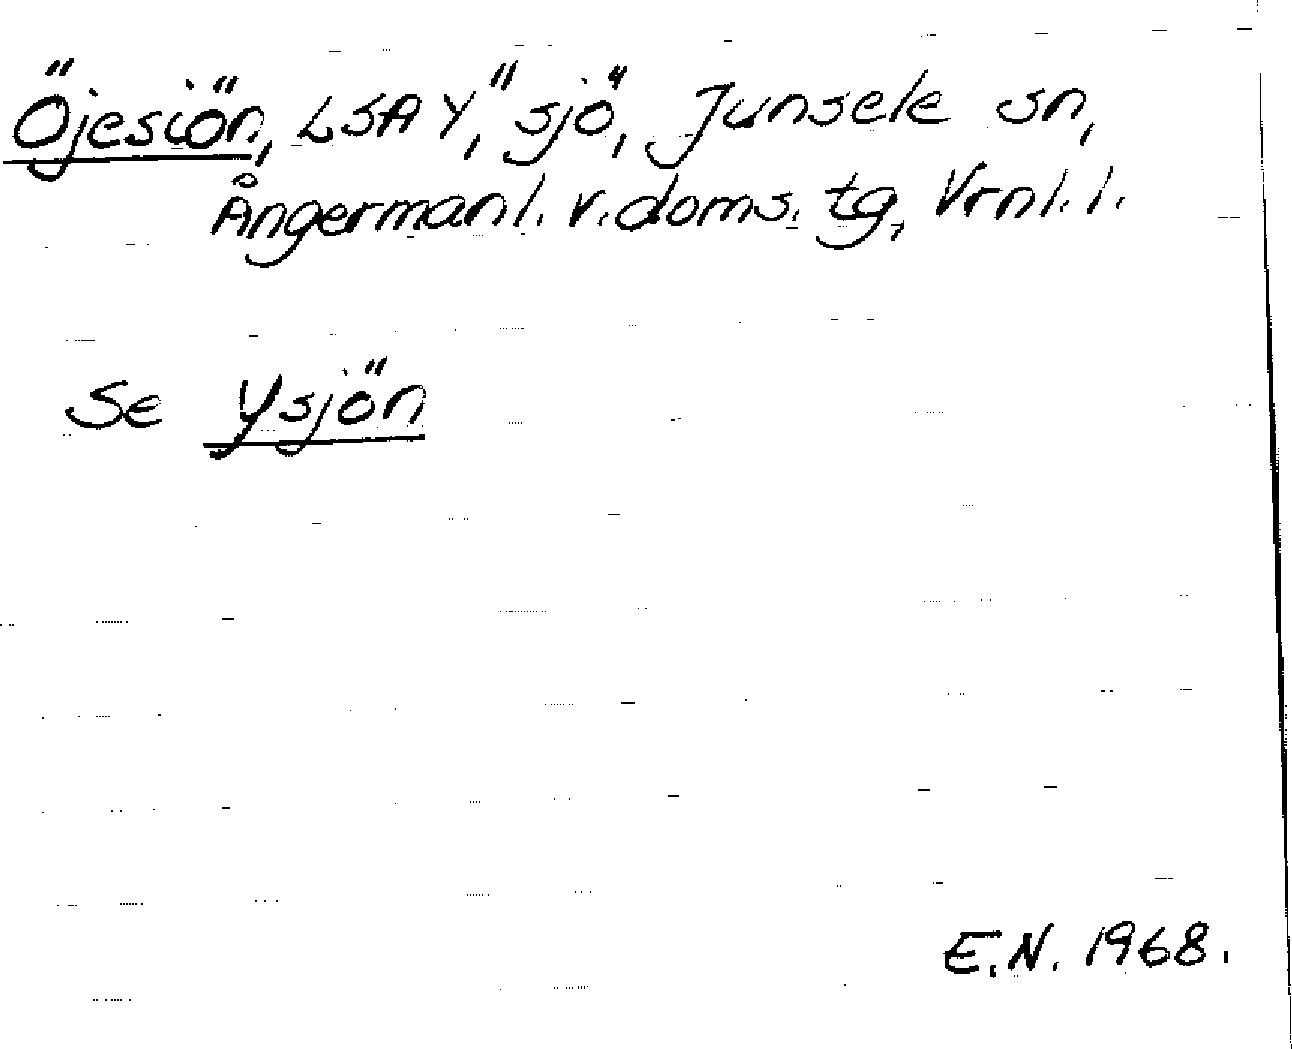 Öjesiön, LSA Y, sjö, Junsele sn,
Ångermanl. v. doms. tg, Vrnl. l.
Se Ysjön
E.N. 1968.